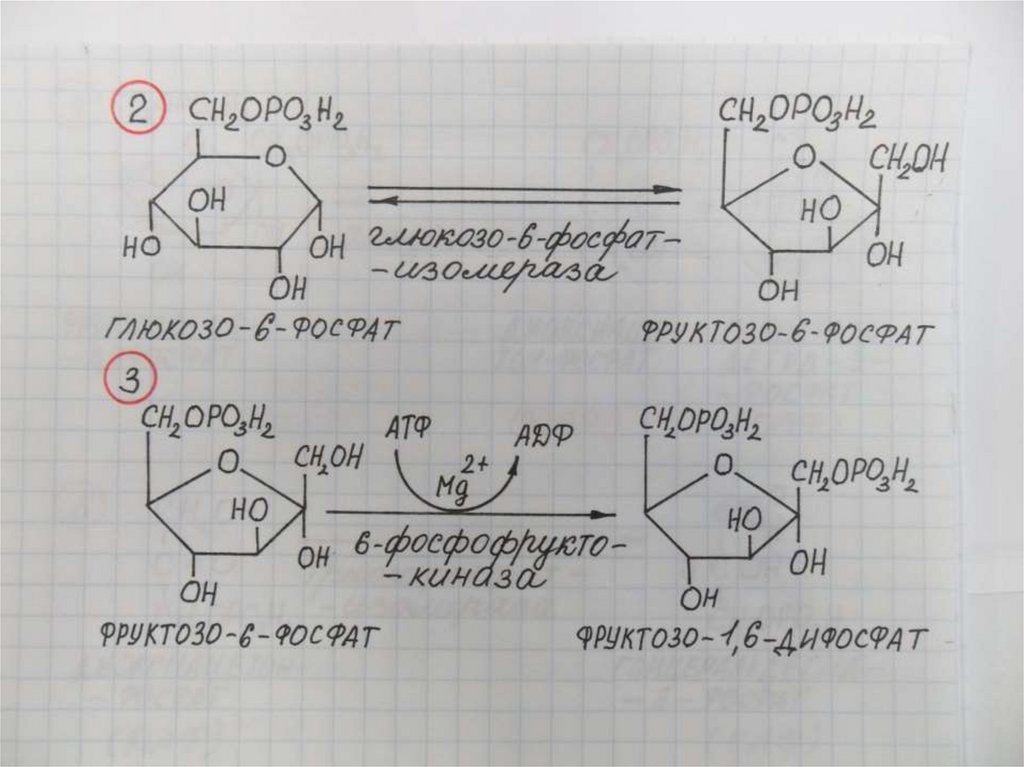 2
CH₂OPO₃H₂
O
OH
HO
OH
OH
глюкозо-6-фосфат-
-изомераза
CH₂OPO₃H₂
O
CH₂OH
HO
OH
OH
ГЛЮКОЗО-6-ФОСФАТ
ФРУКТОЗО-6-ФОСФАТ
3
CH₂OPO₃H₂
O
CH₂OH
HO
OH
OH
АТФ
АДФ
Mg²⁺
6-фосфофрукто-
-киназа
CH₂OPO₃H₂
O
CH₂OPO₃H₂
HO
OH
OH
ФРУКТОЗО-6-ФОСФАТ
ФРУКТОЗО-1,6-ДИФОСФАТ